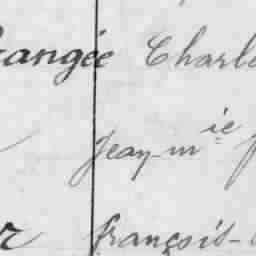 rangée Charle
Jean-mie
r françois-